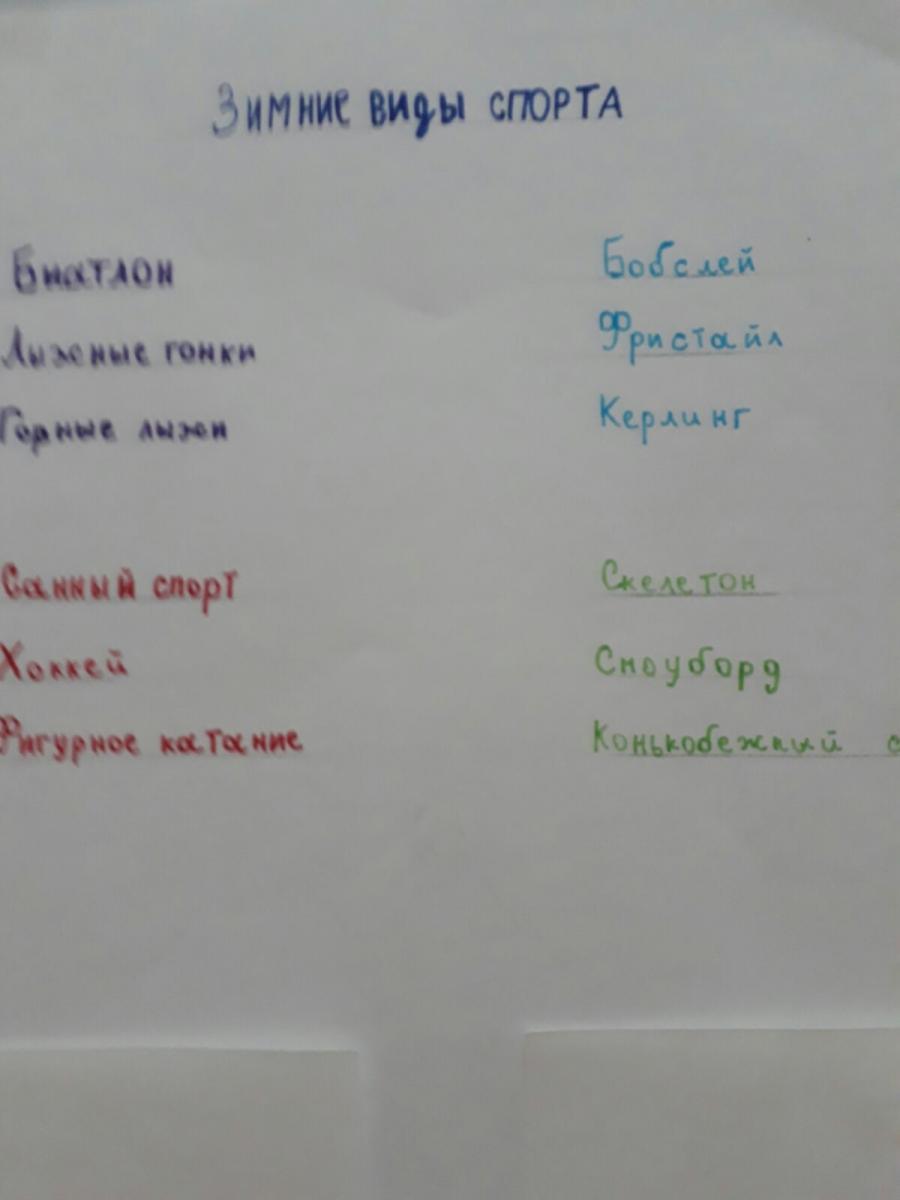 Зимние виды спорта
Биатлон
Лыжные гонки
Горные лыжи
Бобслей
Фристайл
Керлинг
Санный спорт
Хоккей
Фигурное катание
Скелетон
Сноуборд
Конькобежный с